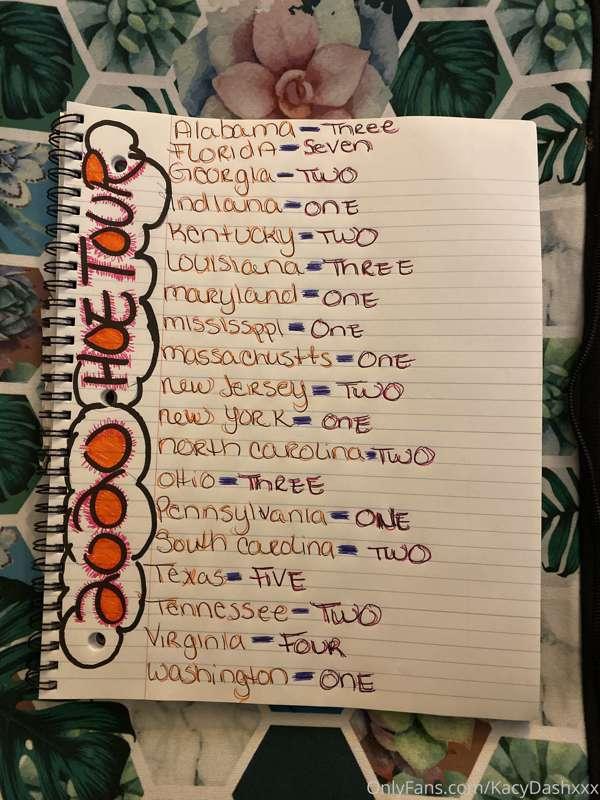 Alabama - Three
FLORIDA - Seven
Georgia - TWO
Indiana - ONE
Kentucky - TWO
Louisiana - THREE
maryland - ONE
mississppi - One
massachustts - ONE
new Jersey - TWO
new YORK - ONE
north carolina - TWO
OHIO - THREE
Pennsylvania - ONE
South carolina - TWO
Texas - FIVE
Tennessee - TWO
VIRGINIA - FOUR
Washington - ONE
HOE TOUR
OnlyFans.com/KacyDashxxx